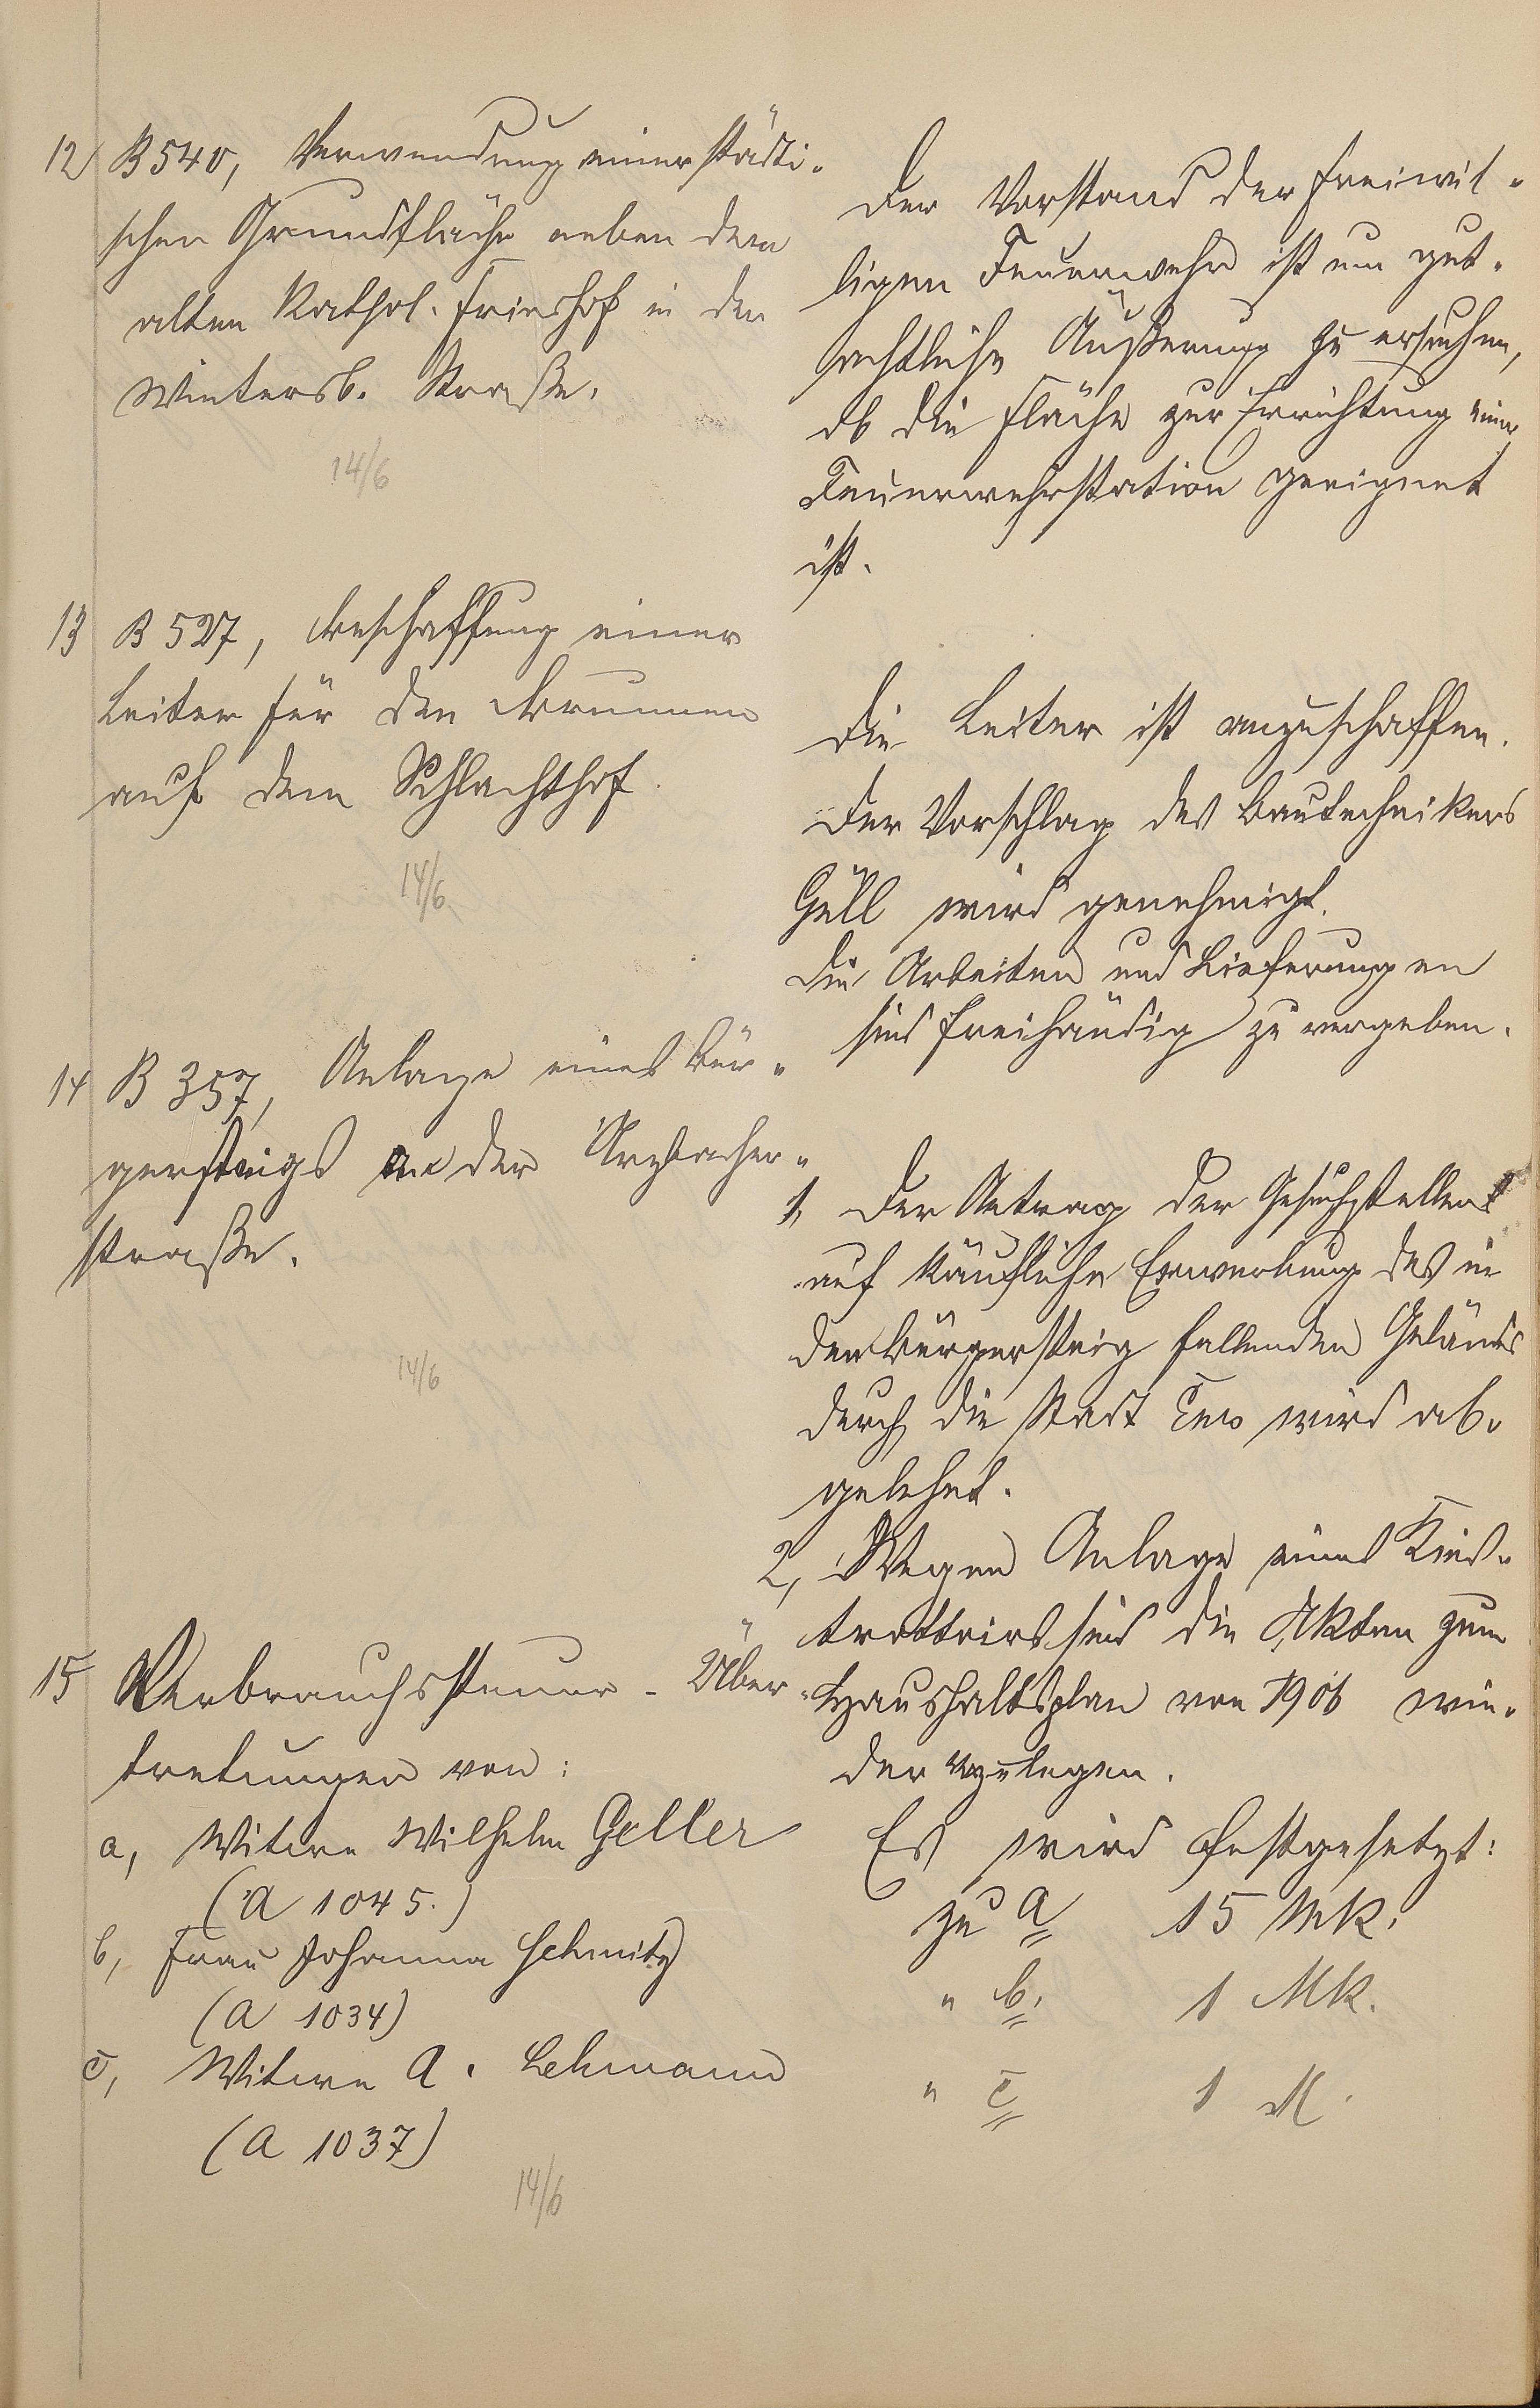 12) B 540, Verwendung einer städti-
schen Grundfläche neben dem
alten Kathol. Friedhof in der
Wintersb. Straße.
14/6
Der Vorstand der Freiwil-
ligen Feuerwehr ist um gut-
achtliche Äußerung zu ersuchen,
ob die Fläche zur Errichtung einer
Feuerwehrstation geeignet
ist.
13 B 527, Beschaffung einer
Leiter für den Brunnen
auf dem Schlachthof.
14/6
Die Leiter ist anzuschaffen.
Der Vorschlag des Bautechnikers
Güll wird genehmigt.
Die Arbeiten und Lieferungen
sind freihändig zu vergeben.
14 B 357, Anlage eines Bür-
gersteigs an der Arzbacher-
straße.
14/6
1, Der Antrag der Gesuchsteller
auf käufliche Erwerbung des in
den Bürgersteig fallenden Geländes
durch die Stadt Ems wird ab-
gelehnt.
2, Wegen Anlage eines Kies-
trottoirs sind die Akten zum
Haushaltsplan von 1906 wie-
der vorzulegen.
15 Verbrauchssteuer-Über-
tretungen von:
a, Witwe Wilhelm Geller
(A 1045.)
b, Frau Johanna Schmitz
(A 1034)
c, Witwe A. Lehmann
(A 1037)
14/6
Es wird festgesetzt:
zu a 15 Mk.
" b. 1 Mk.
" c 1 M.